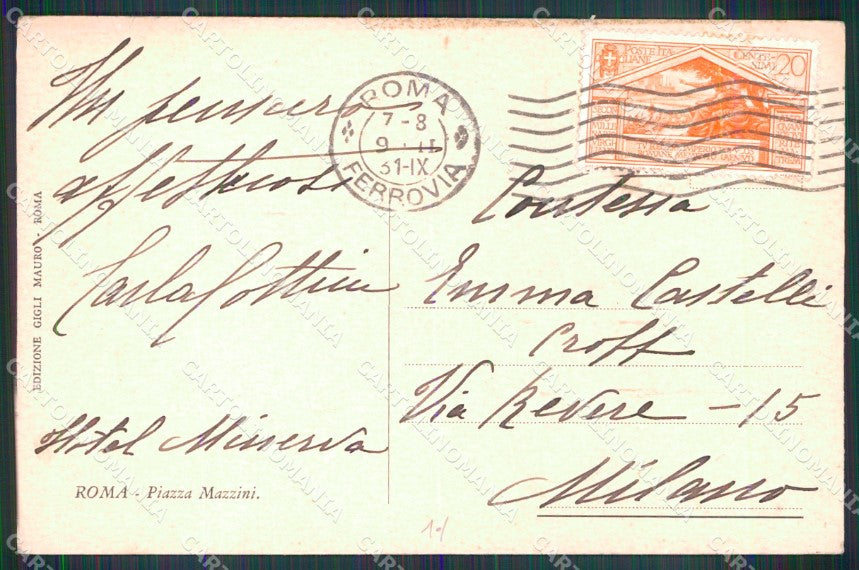 Un pensiero
affettuoso
Carla Sottini
Hotel Minerva
ROMA - Piazza Mazzini.
EDIZIONE GIGLI MAURO - ROMA
ROMA
7-8
9 · II
31-IX
FERROVIA
POSTE ITALIANE
20
Contessa
Emma Castelli
Croff
Via Revere - 15
Milano
CARTOLINOMANIA